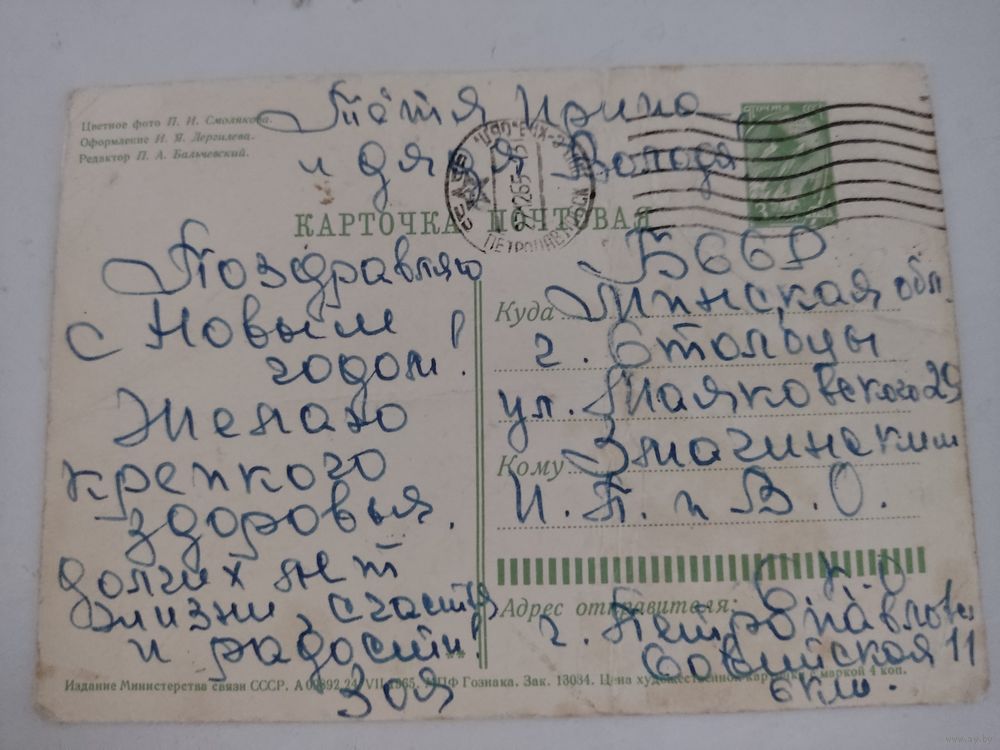 Цветное фото П. И. Смолякова.
Оформление И. Я. Дергилева.
Редактор П. А. Бальчевский.
Тётя Ирина
и дядя Володя
ПОЧТА СССР
ПЕТРОПАВЛОВСК
КАРТОЧКА ПОЧТОВАЯ
Поздравляю
с Новым
годом!
Желаю
крепкого
здоровья.
долгих лет
жизни, счастья
и радости!
Зоя
БССР
Куда Минская обл.
г. Столбцы
ул. Маяковского 29
Кому Змачинским
И. П. и В. О.
Адрес отправителя: С. К. О
г. Петропавловск
11
Издание Министерства связи СССР. А 00892 24/VII 1965. МПФ Гознака. Зак. 13034. Цена художественной карточки с маркой 4 коп.
www.ay.by